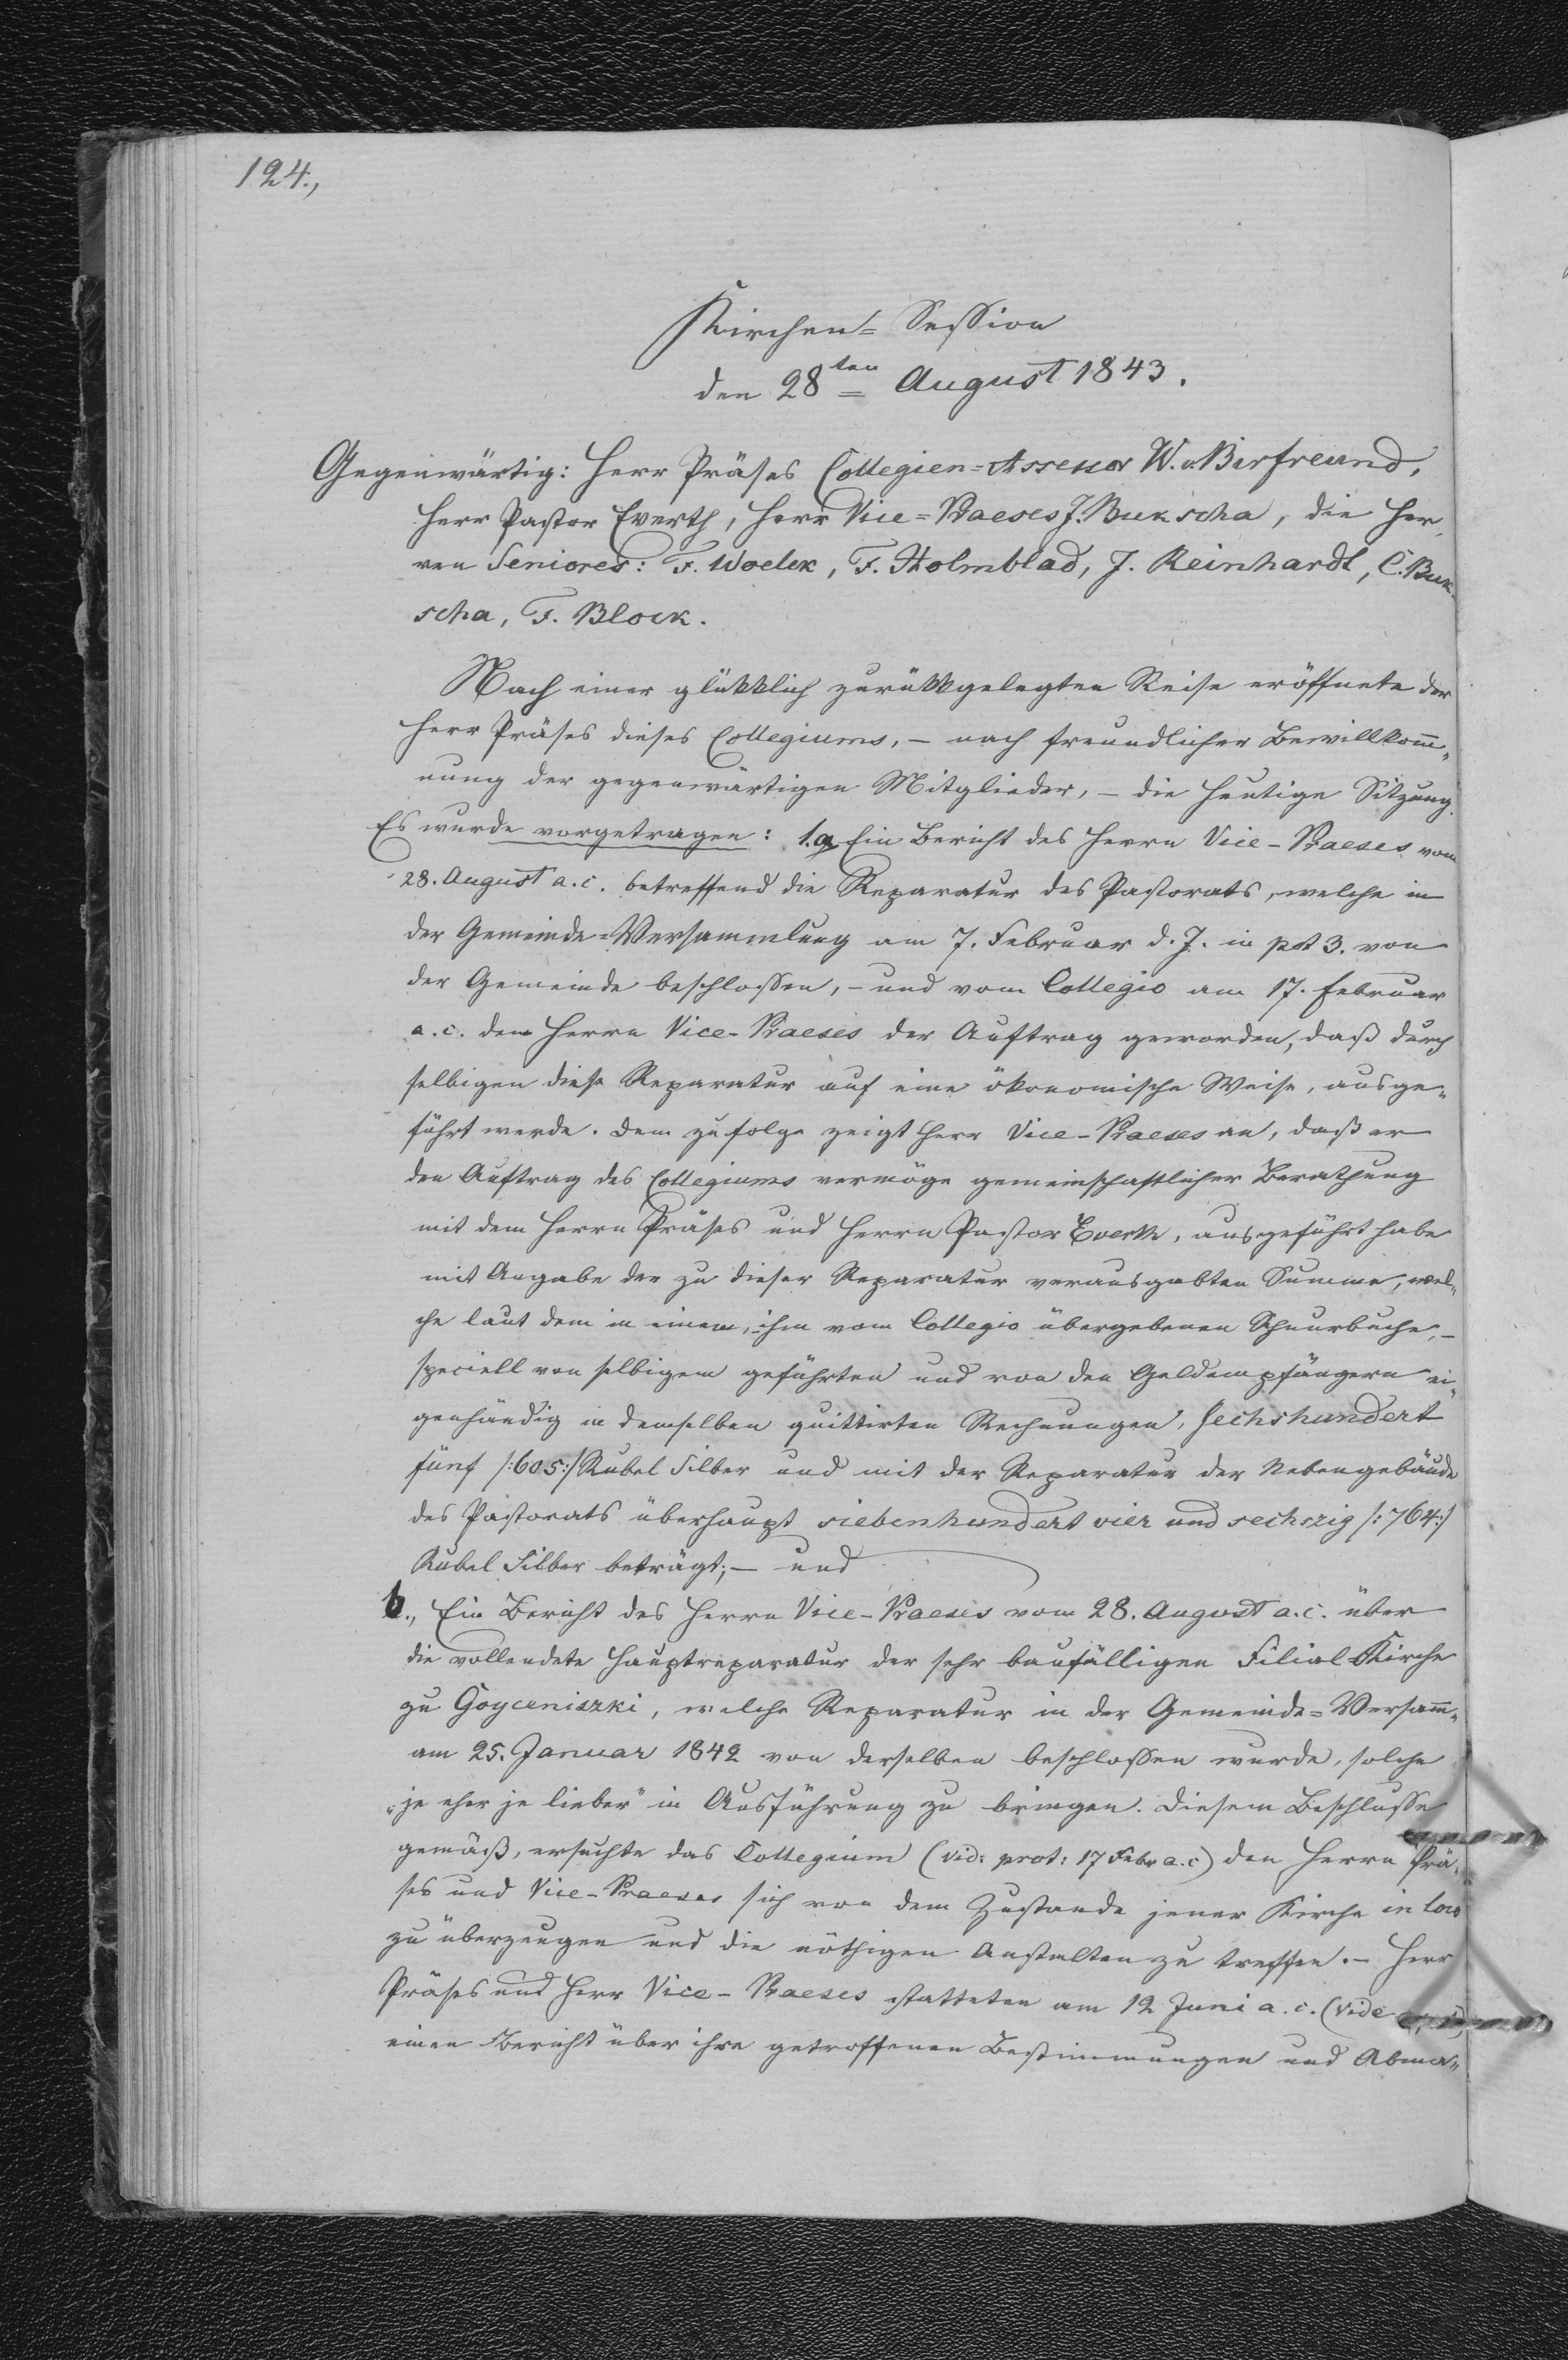 124.,
Kirchen= Session
den 28ten August 1843.
Gegenwärtig: Herr Präses Collegien=Assessor W. v Birfreund,
Herr Pastor Everth, Herr Vice=Praeses J. Bukscha, die Her„
ren Seniores: F. Woelck, F. Holmblad, J. Reinhardt, C. Buk„
scha, F. Block.
Nach einer glükklich zurükkgelegten Reise eröffnete der
Herr Präses dieses Collegiums, – nach freundlicher Bewillkomm„
nung der gegenwärtigen Mitglieder, – die heutige Sitzung.
Es wurde vorgetragen: 1.a, Ein Bericht des Herrn Vice-Praeses vom
28. August a. c. betreffend die Reparatur des Pastorats, welche in
der Gemeinde-Versammlung am 7. Februar d. J. in pct 3. von
der Gemeinde beschlossen, – und vom Collegio am 17. Februar
a. c. dem Herrn Vice-Praeses der Auftrag geworden, daß durch
selbigen diese Reparatur auf eine ökonomische Weise, ausge„
führt werde. Dem zufolge zeigt Herr Vice-Praeses an, daß er
den Auftrag des Collegiums vermöge gemeinschaftlicher Berathung
mit dem Herrn Präses und Herrn Pastor Everth, ausgeführt habe
mit Angabe der zu dieser Reparatur verausgabten Summe, wel„
che laut dem in einem, ihm vom Collegio übergebenen Schnurbuche, –
speciell von selbigem geführten und von den Geldempfängern ei„
genhändig in demselben quittirten Rechnungen, sechshundert
fünf /:605:/ Rubel Silber und mit der Reparatur der Nebengebäude
des Pastorats überhaupt siebenhundert vier und sechszig /:764:/
Rubel Silber beträgt; – und
b., Ein Bericht des Herrn Vice-Praeses vom 28. August a. c. über
die vollendete Hauptreparatur der sehr baufälligen Filial Kirche
zu Goyceniszki, welche Reparatur in der Gemeinde=Versamm„
am 25. Januar 1842 von derselben beschlossen wurde, solche
„je eher je lieber" in Ausführung zu bringen. Diesem Beschlusse
gemäß, ersuchte das Collegium (vid: prot: 17 Febr a. c) den Herrn Prä„
ses und Vice-Praeses sich von dem Zustande jener Kirche in loco
zu überzeugen und die nöthigen Anstalten zu treffen. – Herr
Präses und Herr Vice-Praeses statteten am 12 Juni a. c. (Vide
einen Bericht über ihre getroffenen Bestimmungen und Abma„